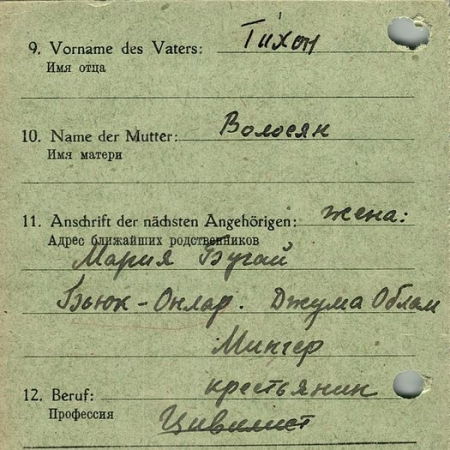 9. Vorname des Vaters: Тихон
Имя отца
10. Name der Mutter: Волосян
Имя матери
11. Anschrift der nächsten Angehörigen: жена:
Адрес ближайших родственников
Мария Бугай
Бьюк-Онлар. Джума Облам
крестьянин
12. Beruf: Цивилист
Профессия